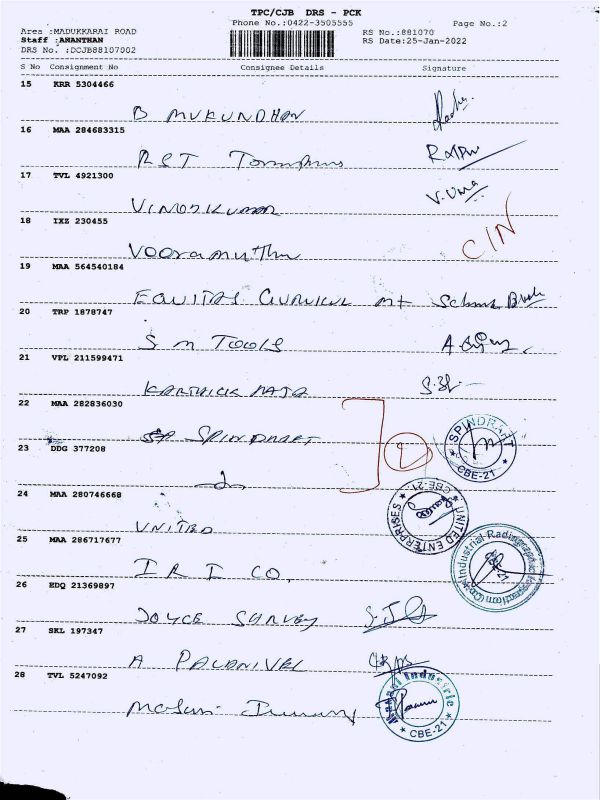 TPC/CJB DRS - PCK
Phone No.:0422-3505555
Page No.:2
Area :MADUKKARAI ROAD
Staff :ANANTHAN
DRS No. :DCJB88107002
RS No.:881070
RS Date:25-Jan-2022
S No Consignment No Consignee Details Signature
15 KRR 5304466
B MUKUNDHAN
16 MAA 284683315
17 TVL 4921300
V. Uma
VINOTHKUMAR
18 IXZ 230455
C/N
19 MAA 564540184
EQUITAS GURUKUL Mt School
20 TRP 1878747
S M TOOLS
21 VPL 211599471
KARTHICK RAJA
22 MAA 282836030
SPINDRAFT
SPINDRAFT CBE-21
23 DDG 377208
24 MAA 280746668
UNITED ENTERPRISES CBE-21
UNITED
25 MAA 286717677
I R I CO,
26 EDQ 21369897
JOYCE SURVEY
27 SKL 197347
A PALANIVEL
28 TVL 5247092
CBE-21